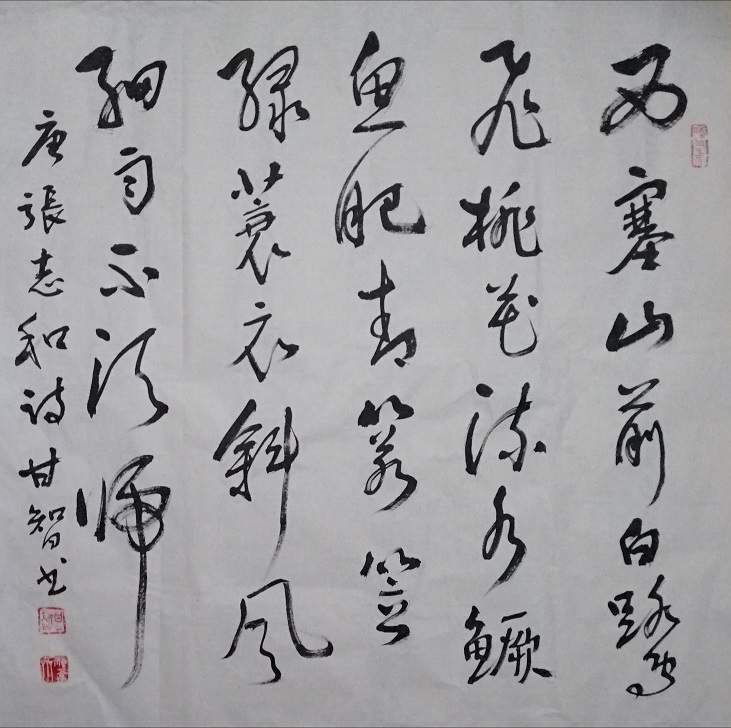 西塞山前白鹭
飞桃花流水鳜
鱼肥青箬笠
绿蓑衣斜风
细雨不须归
唐張志和诗甘智书